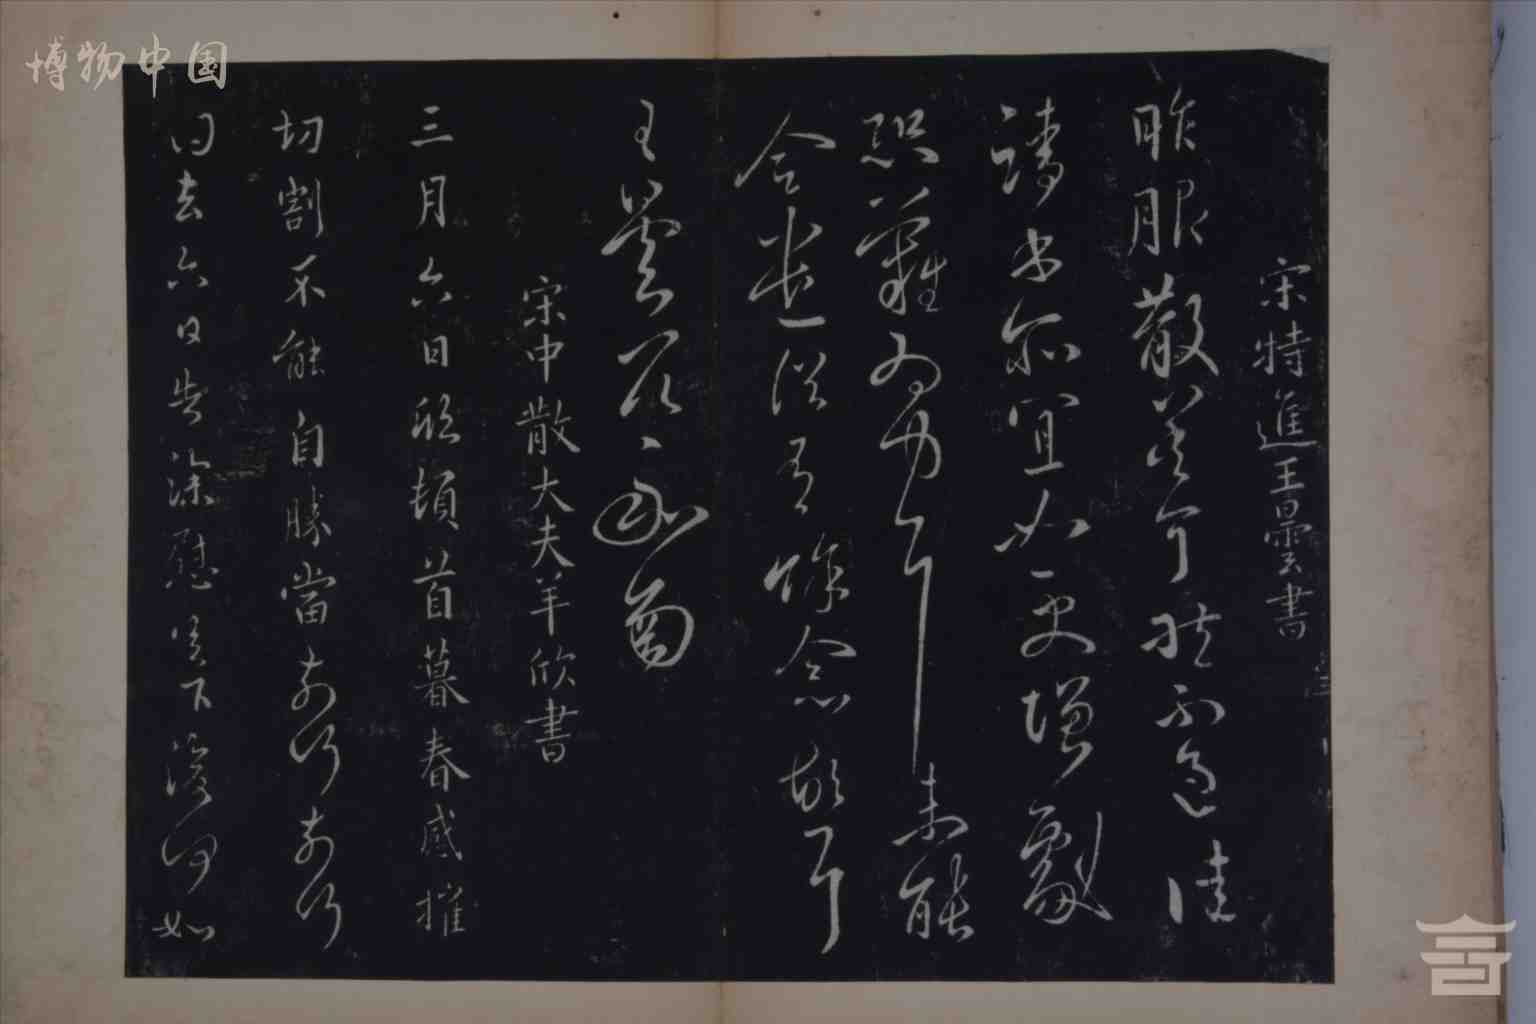 博物中国
宋特進王曇書
昨服散差可然不過佳
請書亦宜如更增劇
恐難為力耳未能
令悲從弟佳念故耳
王曇首
宋中散大夫羊欣書
三月六日欣頓首暮春感摧
切割不能自勝當奈何奈何
得去六日告深慰足下復何如